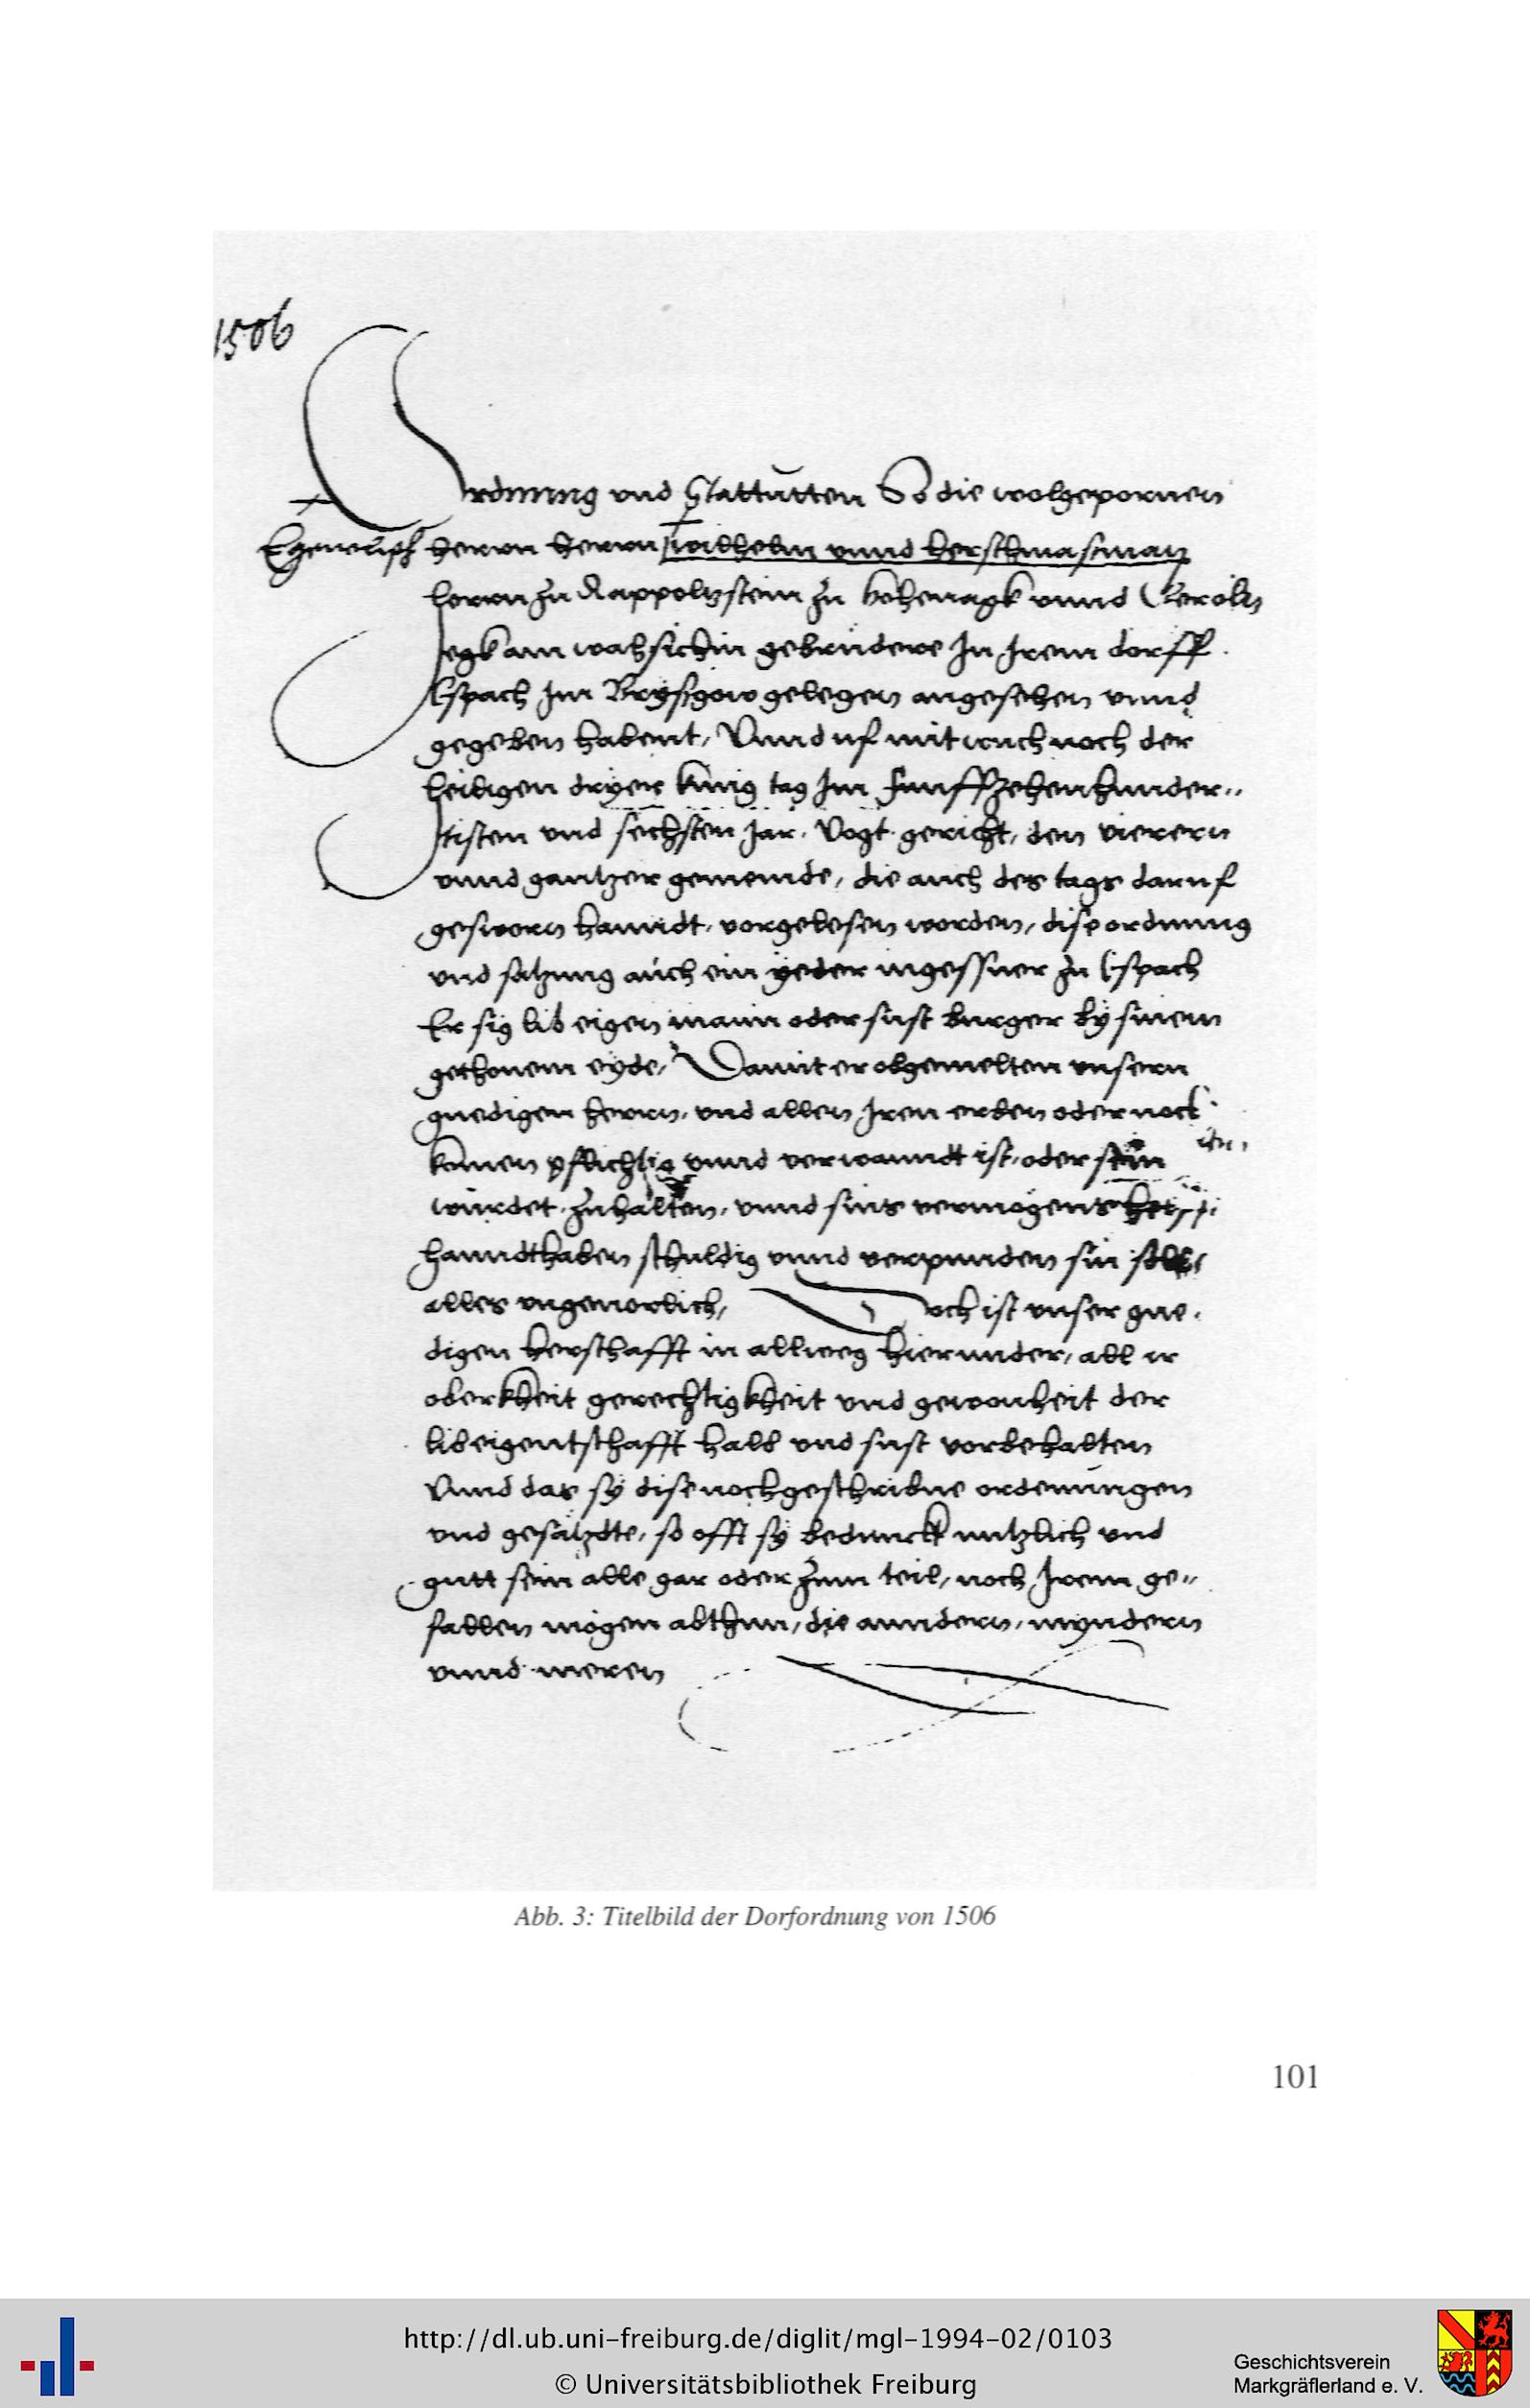 1506
Ordnung und Stattutten So die wolgepornen
Egenolph herrn herrn Wilhelm unnd herschmasman
herrn zu Rappoltzstein zu hohenagk unnd Geroltz
egk am wahsichin gebrudere In Irem dorff
Ispach Im Brÿsgow gelegen angesehen unnd
gegeben habent, Unnd uf mitwuch noch der
heiligen dryer kunig tag Im funffzehenhunder„
tisten und sechsten Jar. Vogt gericht, den vierern
unnd gantzer gemeinde, die auch des tags daruf
gesworn hanndt, vorgelesen worden, dise ordnung
und satzung auch ein yeder ingessner zu Ispach
Er sig lib eigen mann oder sust burger bÿ sinem
gethonem eyde, Damit er obgemelten unsern
gnedigen herrn, und allen Iren erben oder noch
komen pflichtig unnd verwanndt ist, oder
wurdet, zuhalten, unnd sins vermogens
hanndthaben schuldig unnd verpunden sin soll
alles ungeuorlich, Doch ist unser gne,
digen herschafft in allweg hierunder, all ir
oberkheit gerechtigkheit und gewonheit der
libeigentschafft halb und sust vorbehalten
Unnd das sÿ dise nochgeschribne ordenungen
und gesätzdte, so offt sÿ bedunckt nutzlich und
gutt sein alle gar oder zum teil, noch Irem ge„
fallen mogen abthun, die anndern, myndern
unnd meren
Abb. 3: Titelbild der Dorfordnung von 1506
101
http://dl.ub.uni-freiburg.de/diglit/mgl-1994-02/0103
© Universitätsbibliothek Freiburg
Geschichtsverein
Markgräflerland e. V.